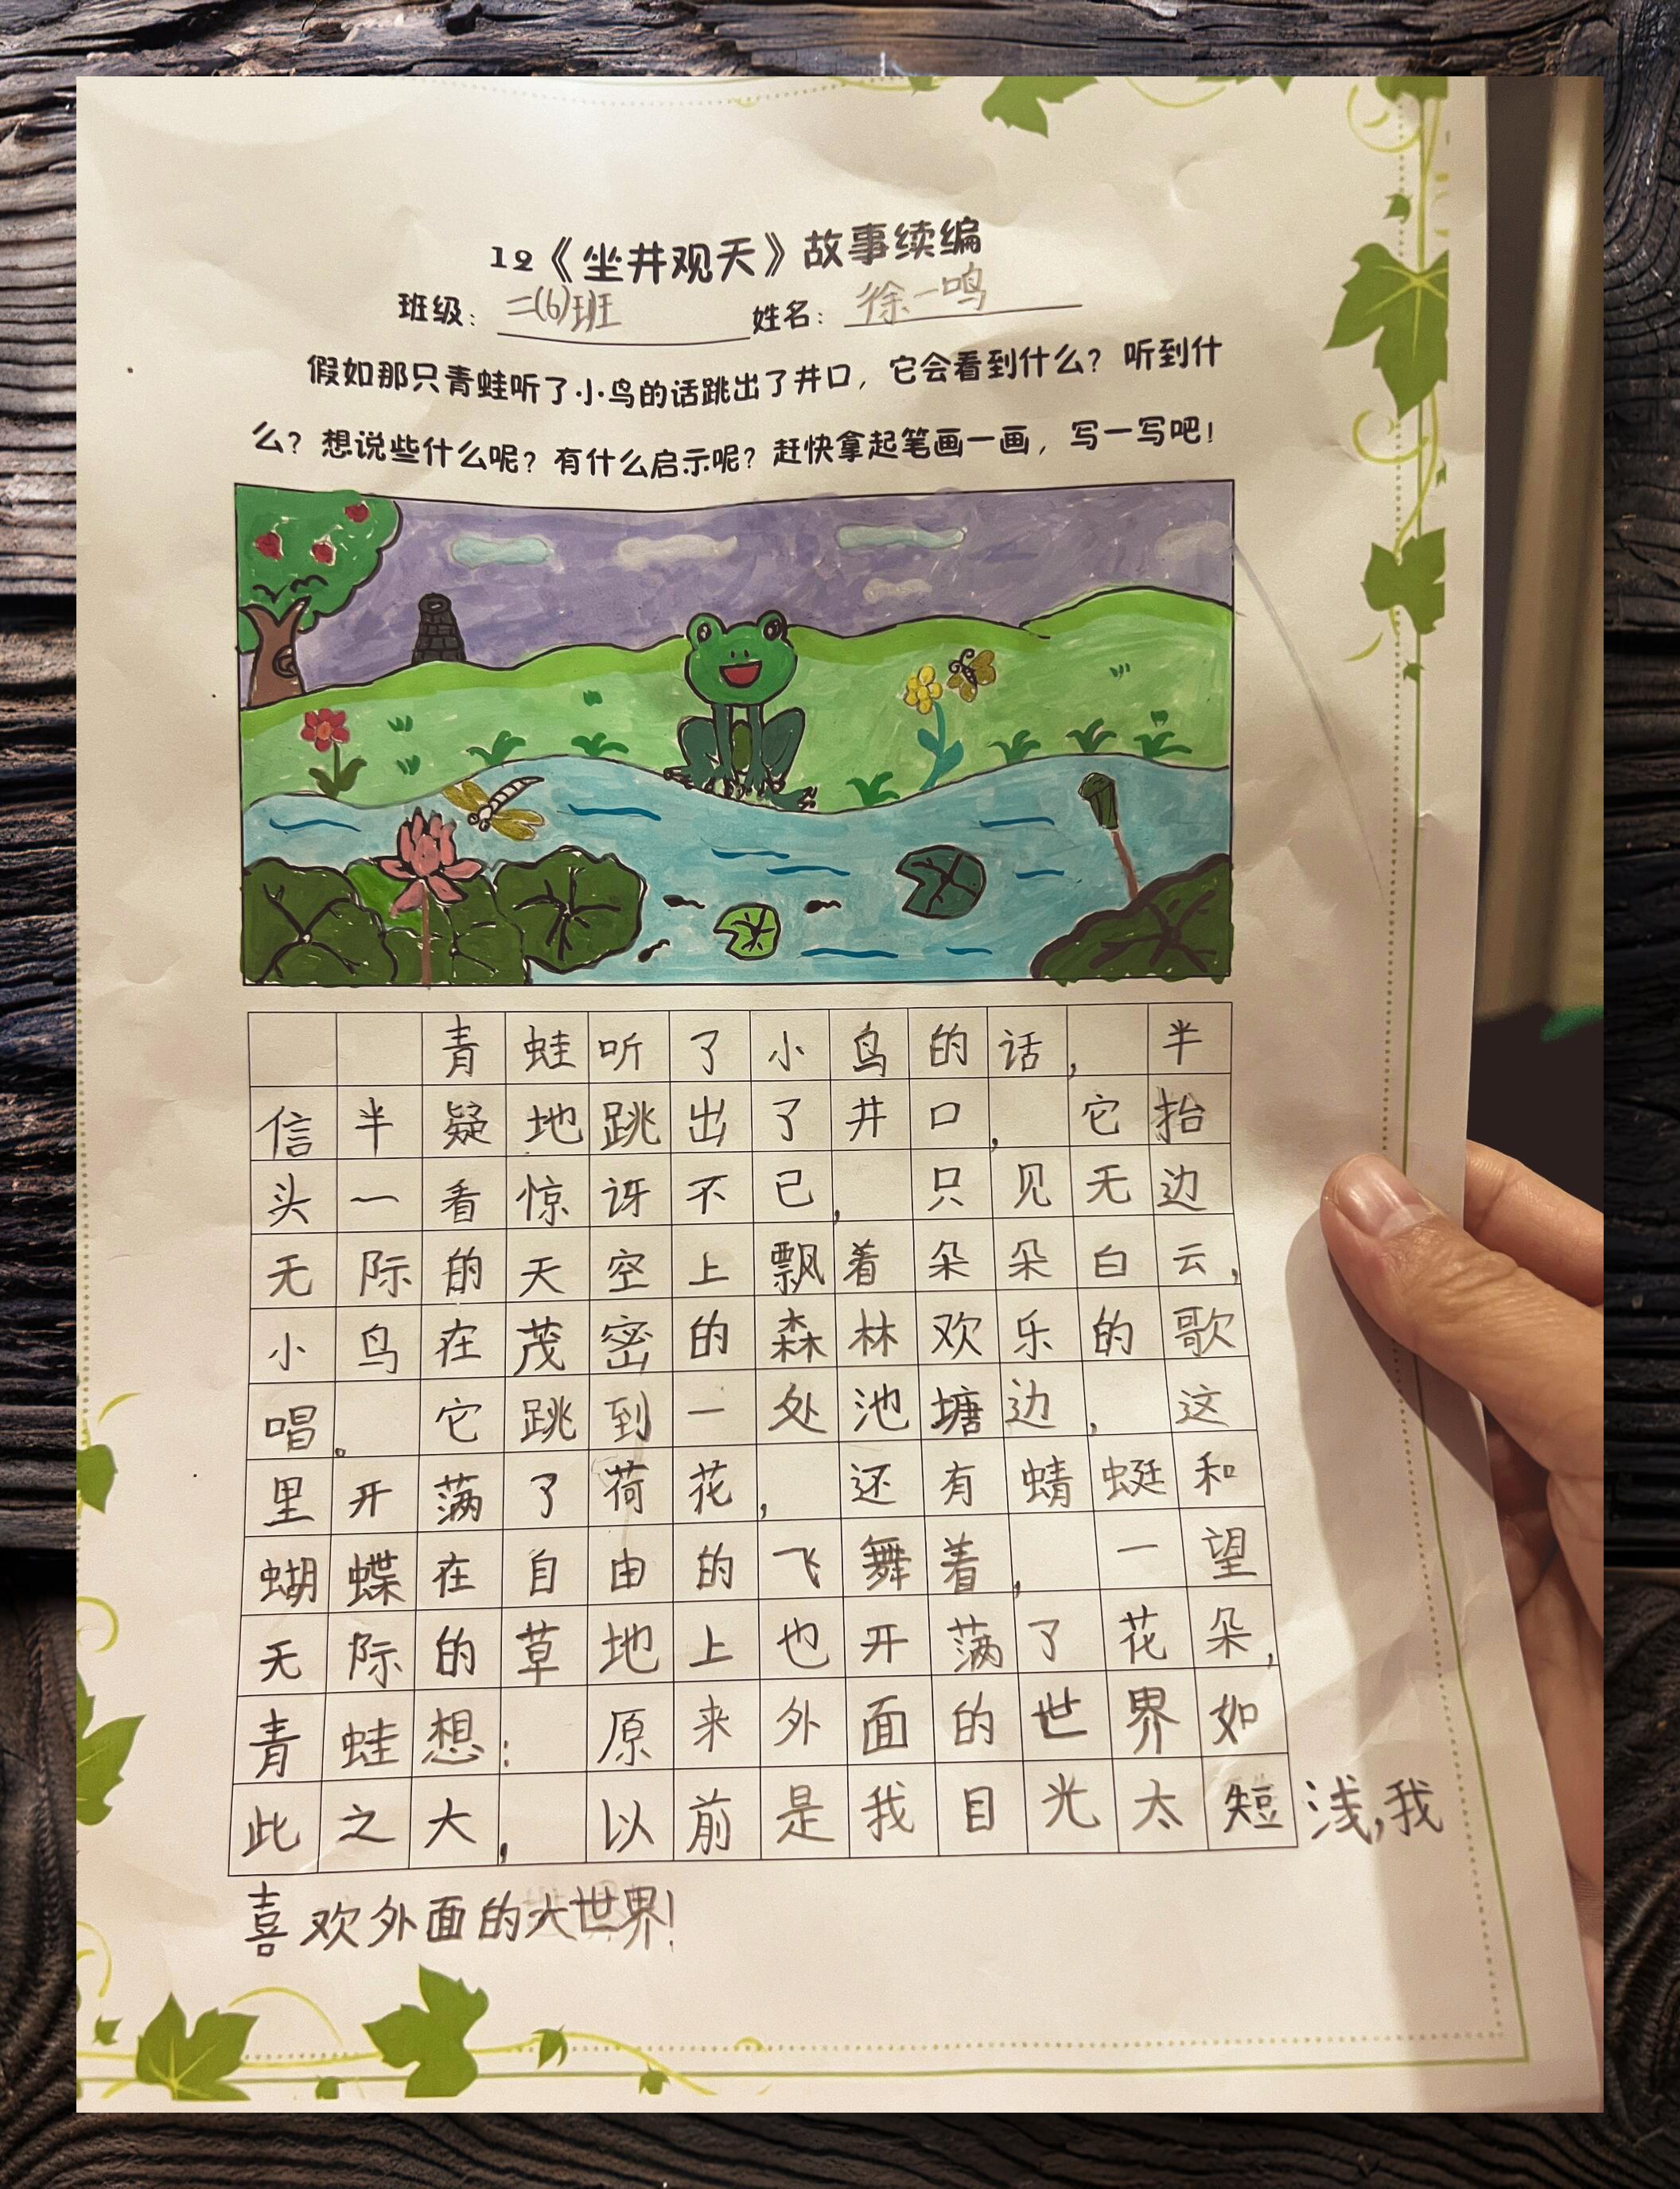 12《坐井观天》故事续编
班级：二(6)班 姓名：徐一鸣
假如那只青蛙听了小鸟的话跳出了井口，它会看到什么？听到什
么？想说些什么呢？有什么启示呢？赶快拿起笔画一画，写一写吧！
青蛙听了小鸟的话，半
信半疑地跳出了井口，它抬
头一看惊讶不已，只见无边
无际的天空上飘着朵朵白云，
小鸟在茂密的森林欢乐的歌
唱。它跳到一处池塘边，这
里开满了荷花，还有蜻蜓和
蝴蝶在自由的飞舞着，一望
无际的草地上也开满了花朵，
青蛙想：原来外面的世界如
此之大，以前是我目光太短浅，我
喜欢外面的大世界！